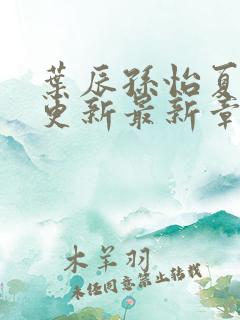 葉辰孫怡夏
更新最新章
木羊羽
未经同意禁止转载